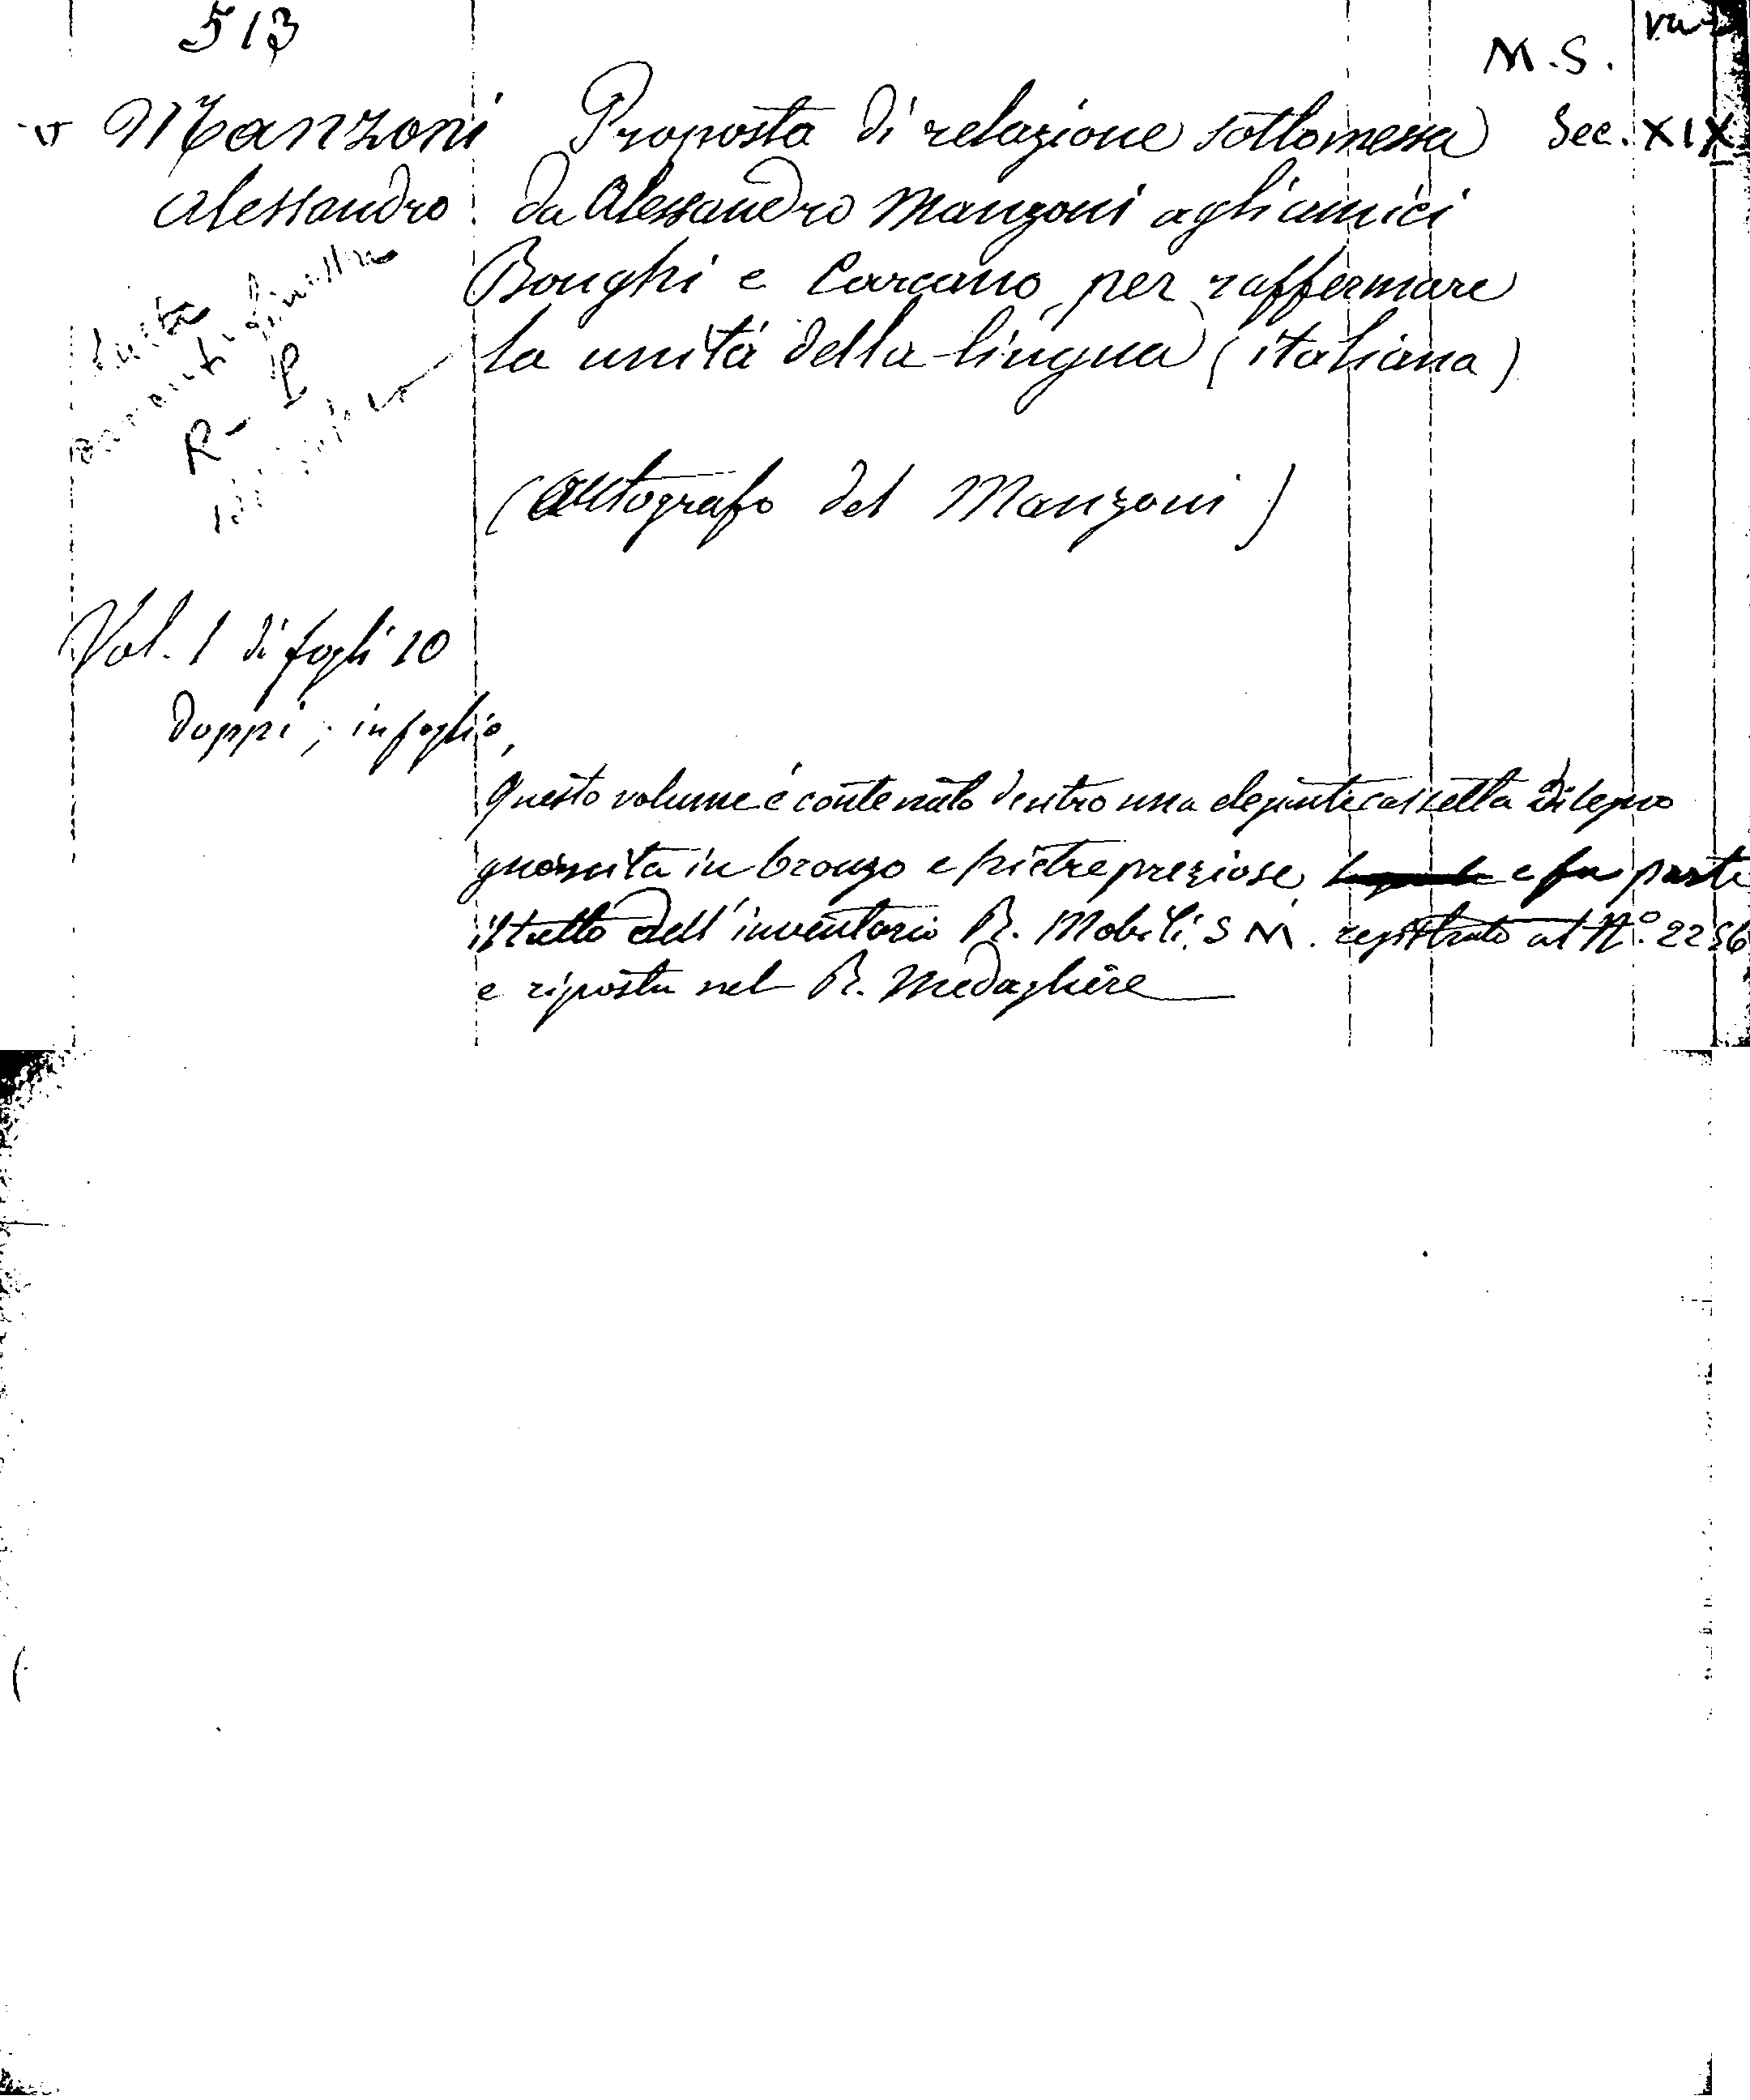 513
M.S.
v Manzoni Proposta di relazione sottomessa Sec. XIX
Alessandro da Alessandro Manzoni agli amici
Bonghi e Carcano per raffermare
la unità della lingua (italiana)
R-P
(Autografo del Manzoni)
Vol. 1 di fogli 10
doppi; in foglio,
Questo volume è contenuto dentro una elegante cassetta di legno
guarnita in bronzo e pietre preziose e fa parte
il tutto dell'inventario R. Mobili S M. registrato al N.° 2256
e riposta nel R. Medagliere